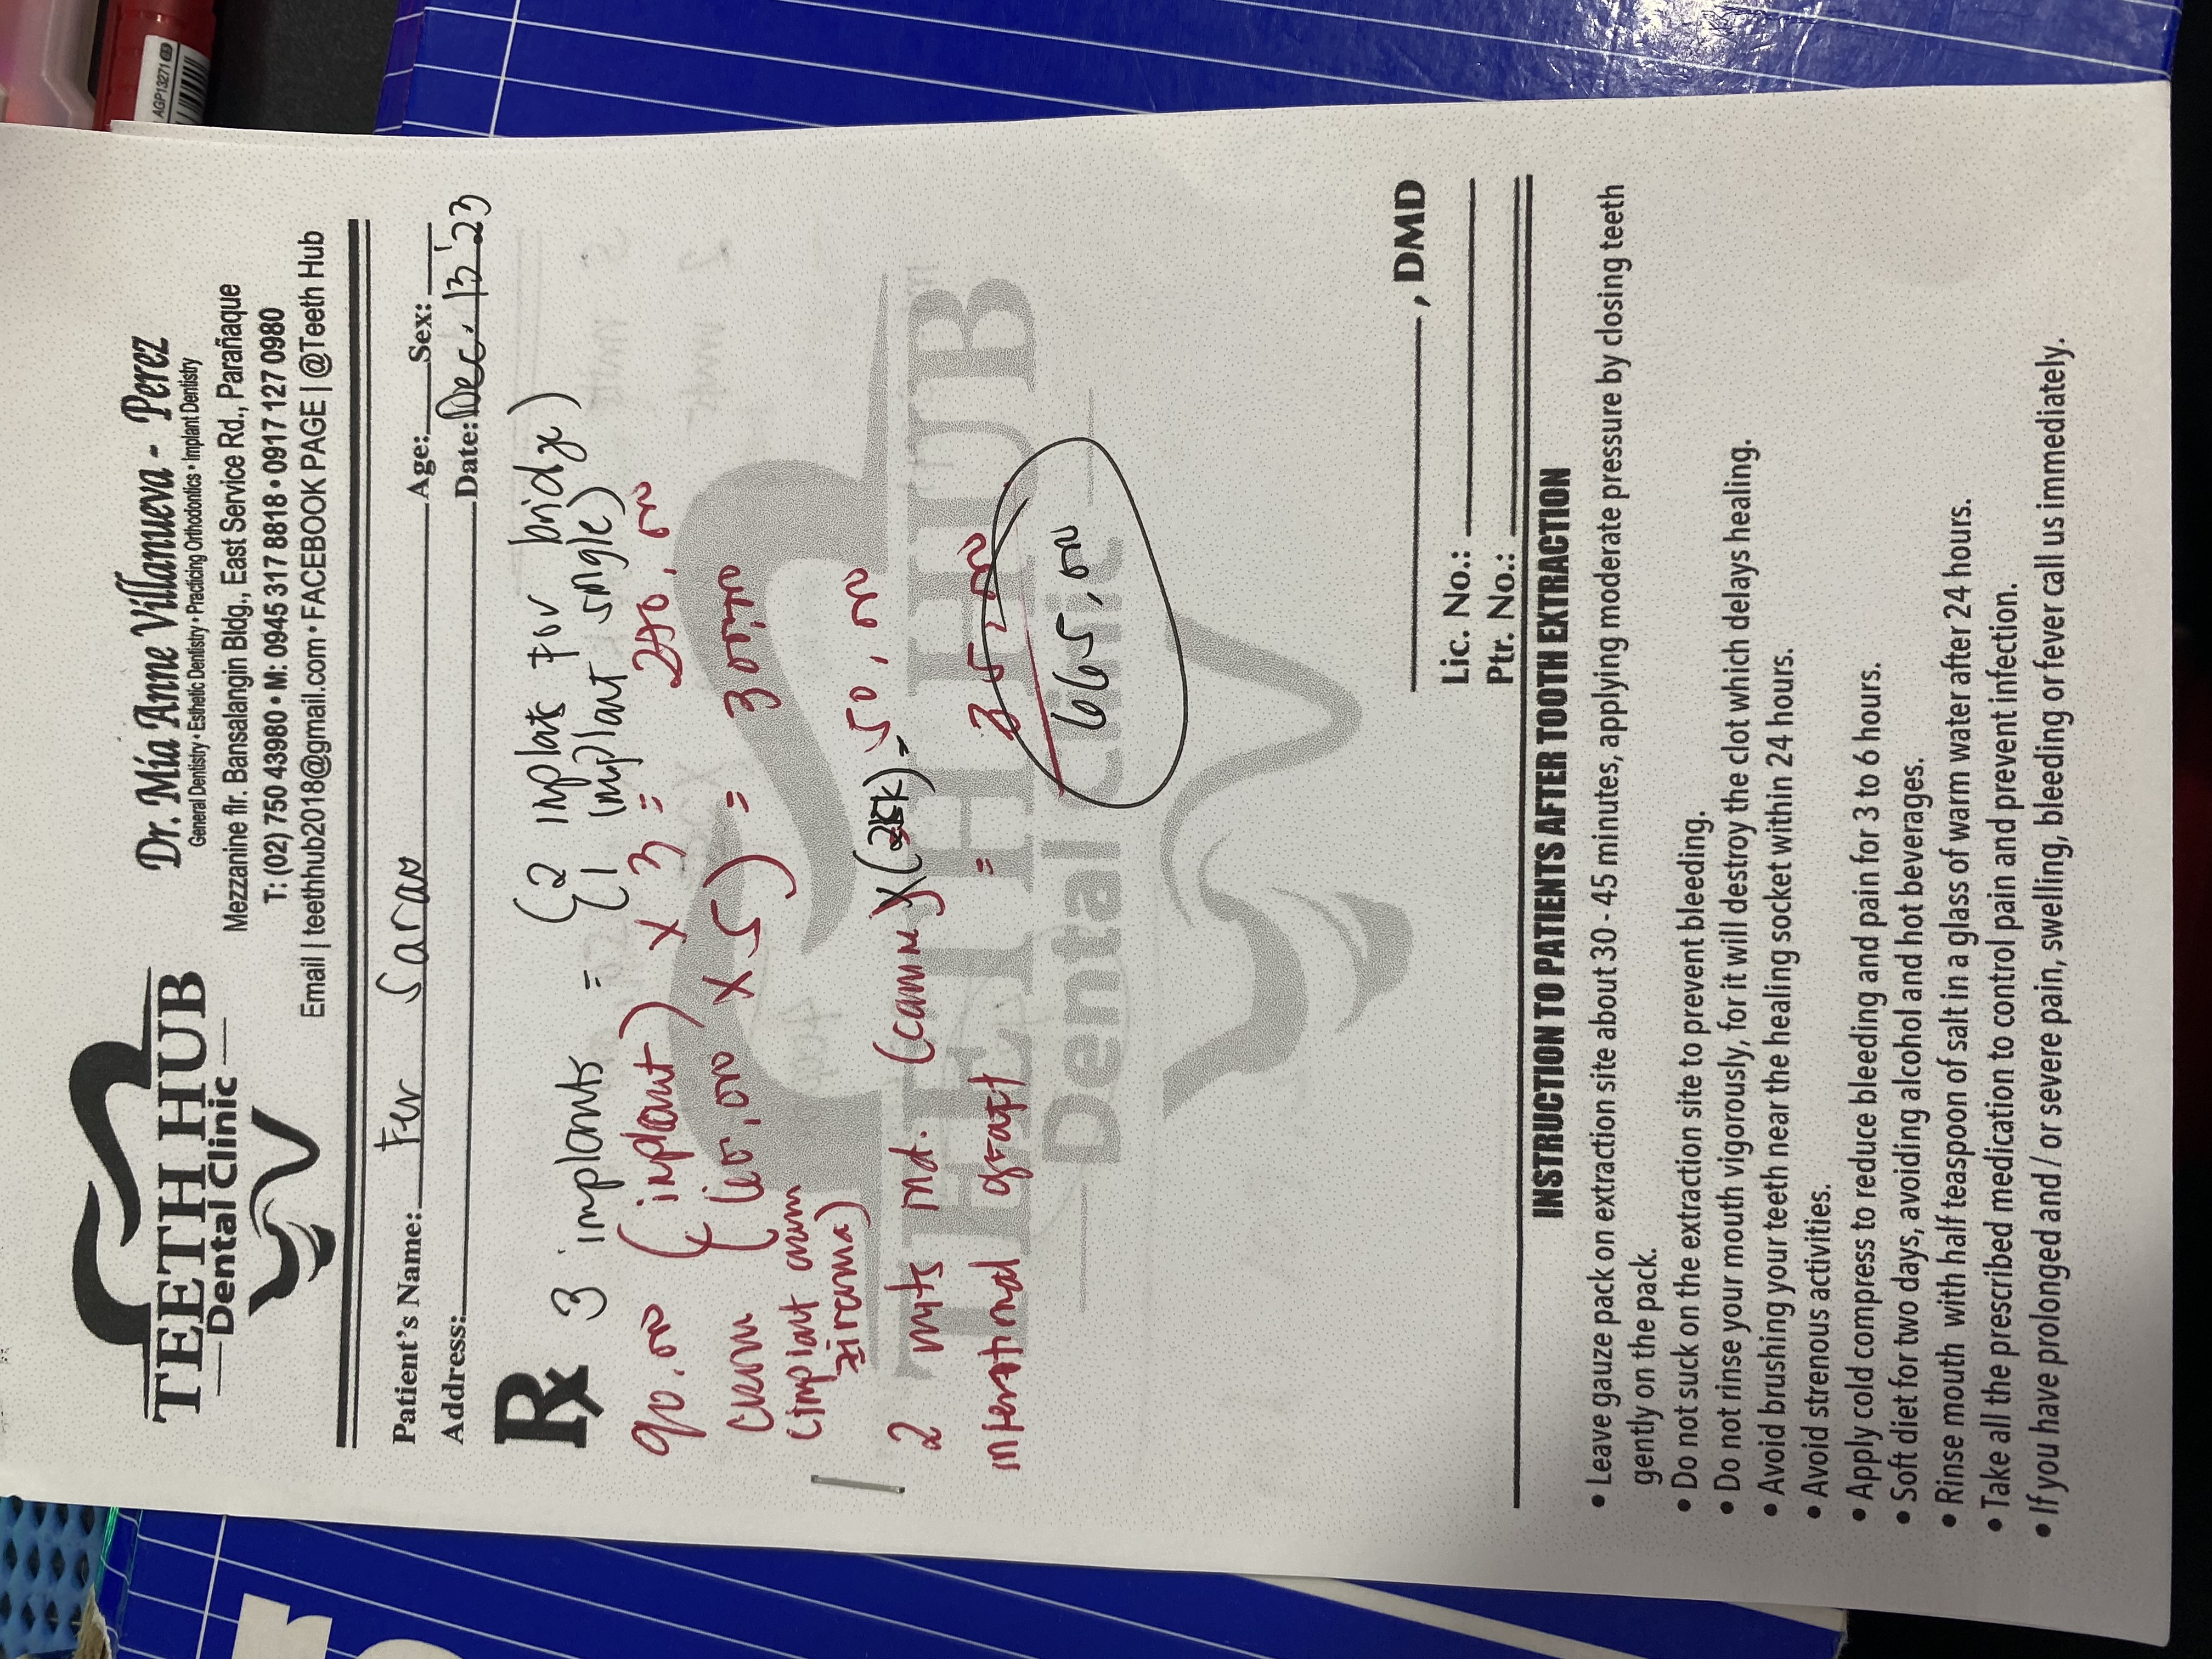 AGP13271
TEETH HUB
Dental Clinic
Dr. Mia Anne Villanueva - Perez
General Dentistry • Esthetic Dentistry • Practicing Orthodontics • Implant Dentistry
Mezzanine flr. Bansalangin Bldg., East Service Rd., Parañaque
T: (02) 750 43980 • M: 0945 317 8818 • 0917 127 0980
Email | teethhub2018@gmail.com • FACEBOOK PAGE | @Teeth Hub
Patient's Name: Fer Sarao Age: Sex:
Address: Date: Dec. 13 '23
Rx
3 implants = (2 implats for bridge)
(1 implant single)
90,000 (implant) x 3 =
(60,000 x 5) = 300,000
(implant
2 (25k) = 50,000
graft = 35,000
665,000
TEETH HUB
Dental Clinic
, DMD
Lic. No.:
Ptr. No.:
INSTRUCTION TO PATIENTS AFTER TOOTH EXTRACTION
• Leave gauze pack on extraction site about 30 - 45 minutes, applying moderate pressure by closing teeth
gently on the pack.
• Do not suck on the extraction site to prevent bleeding.
• Do not rinse your mouth vigorously, for it will destroy the clot which delays healing.
• Avoid brushing your teeth near the healing socket within 24 hours.
• Avoid strenous activities.
• Apply cold compress to reduce bleeding and pain for 3 to 6 hours.
• Soft diet for two days, avoiding alcohol and hot beverages.
• Rinse mouth with half teaspoon of salt in a glass of warm water after 24 hours.
• Take all the prescribed medication to control pain and prevent infection.
• If you have prolonged and/ or severe pain, swelling, bleeding or fever call us immediately.